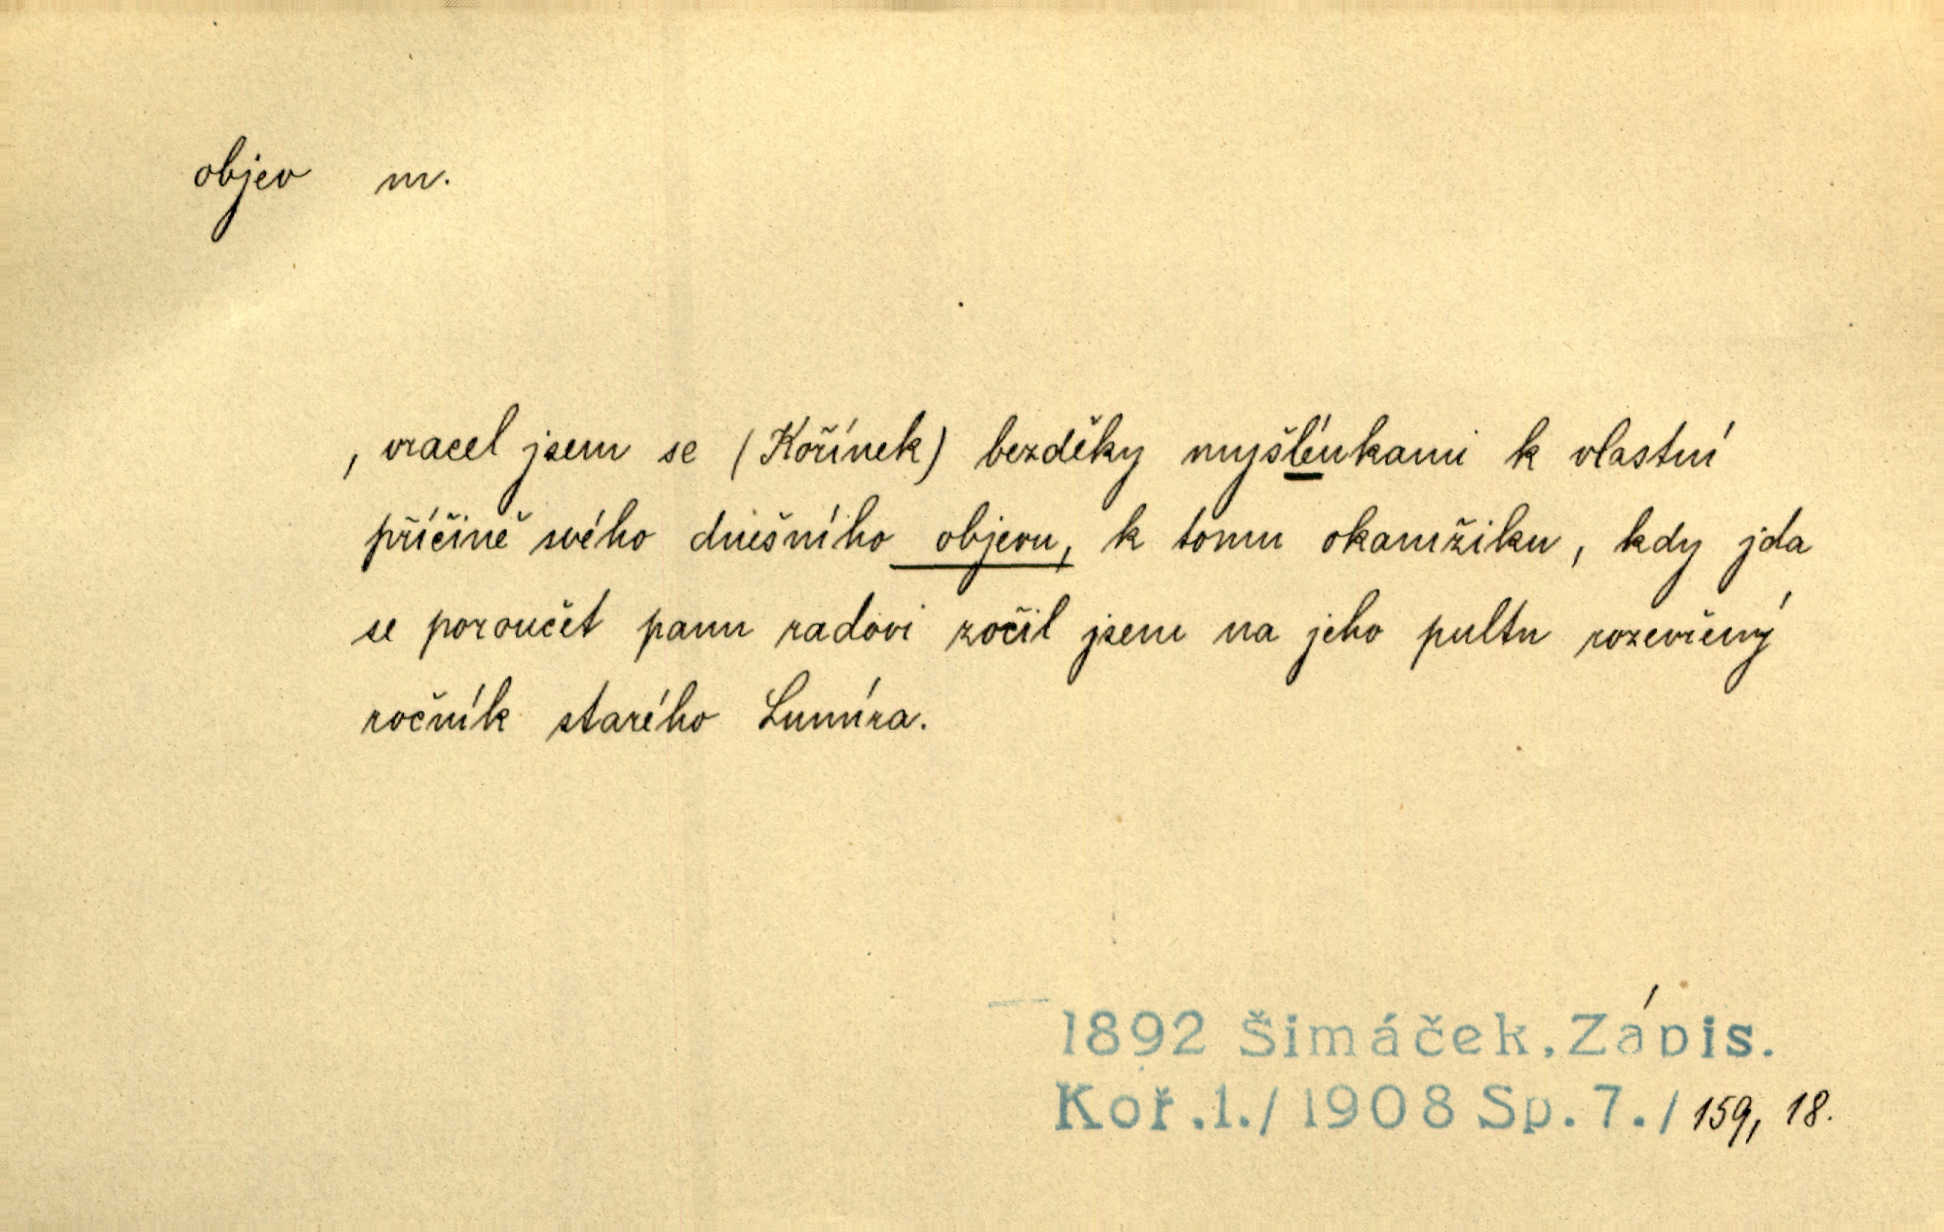 objev m.
, vracel jsem se (Kořínek) bezděky myšlénkami k vlastní
příčině svého dnešního objevu, k tomu okamžiku, kdy jda
se poroučet panu radovi zočil jsem na jeho pultu rozevřený
ročník starého Lumíra.
1892 Šimáček, Zápis.
Koř.1./1908 Sp.7./159, 18.